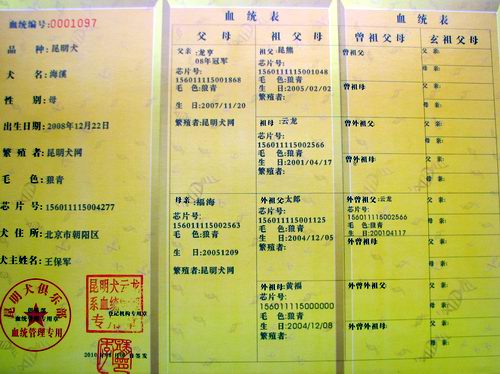 血统编号:0001097
品 种:昆明犬
犬 名:海溪
性 别:母
出生日期:2008年12月22日
繁殖者:昆明犬网
毛 色:狼青
芯片号:156011115004277
犬住所:北京市朝阳区
犬主姓名:王保军
昆明犬俱乐部
血统管理专用
登记机构专用章
血统表
父母
祖父母
父亲:龙亨
08年冠军
芯片号:
156011115001868
毛 色:狼青
生 日:2007/11/20
繁殖者:昆明犬网
祖父:昆熊
芯片号:
156011115001048
毛 色:狼青
生 日:2005/02/02
繁殖者:
祖母:云龙
芯片号:
156011115002566
毛 色:狼青
生 日:2001/04/17
繁殖者:
母亲:福海
芯片号:
156011115002563
毛 色:狼青
生 日:20051209
繁殖者:昆明犬网
外祖父:太郎
芯片号:
156011115001125
毛 色:狼青
生 日:2004/12/05
繁殖者:
外祖母:黄福
芯片号:
156011115000000
毛 色:狼青
生 日:2004/12/08
繁殖者:
血统表
曾祖父母
玄祖父母
曾祖父:
父亲:
母亲:
曾祖母:
父亲:
母亲:
曾外祖父:
父亲:
母亲:
曾外祖母:
父亲:
母亲:
外曾祖父:云龙
芯片号:
156011115002566
毛 色:狼青
生 日:200104117
父亲:
母亲:
外曾祖母:
父亲:
母亲:
外曾外祖父:
父亲:
母亲:
外曾外祖母:
父亲:
母亲: